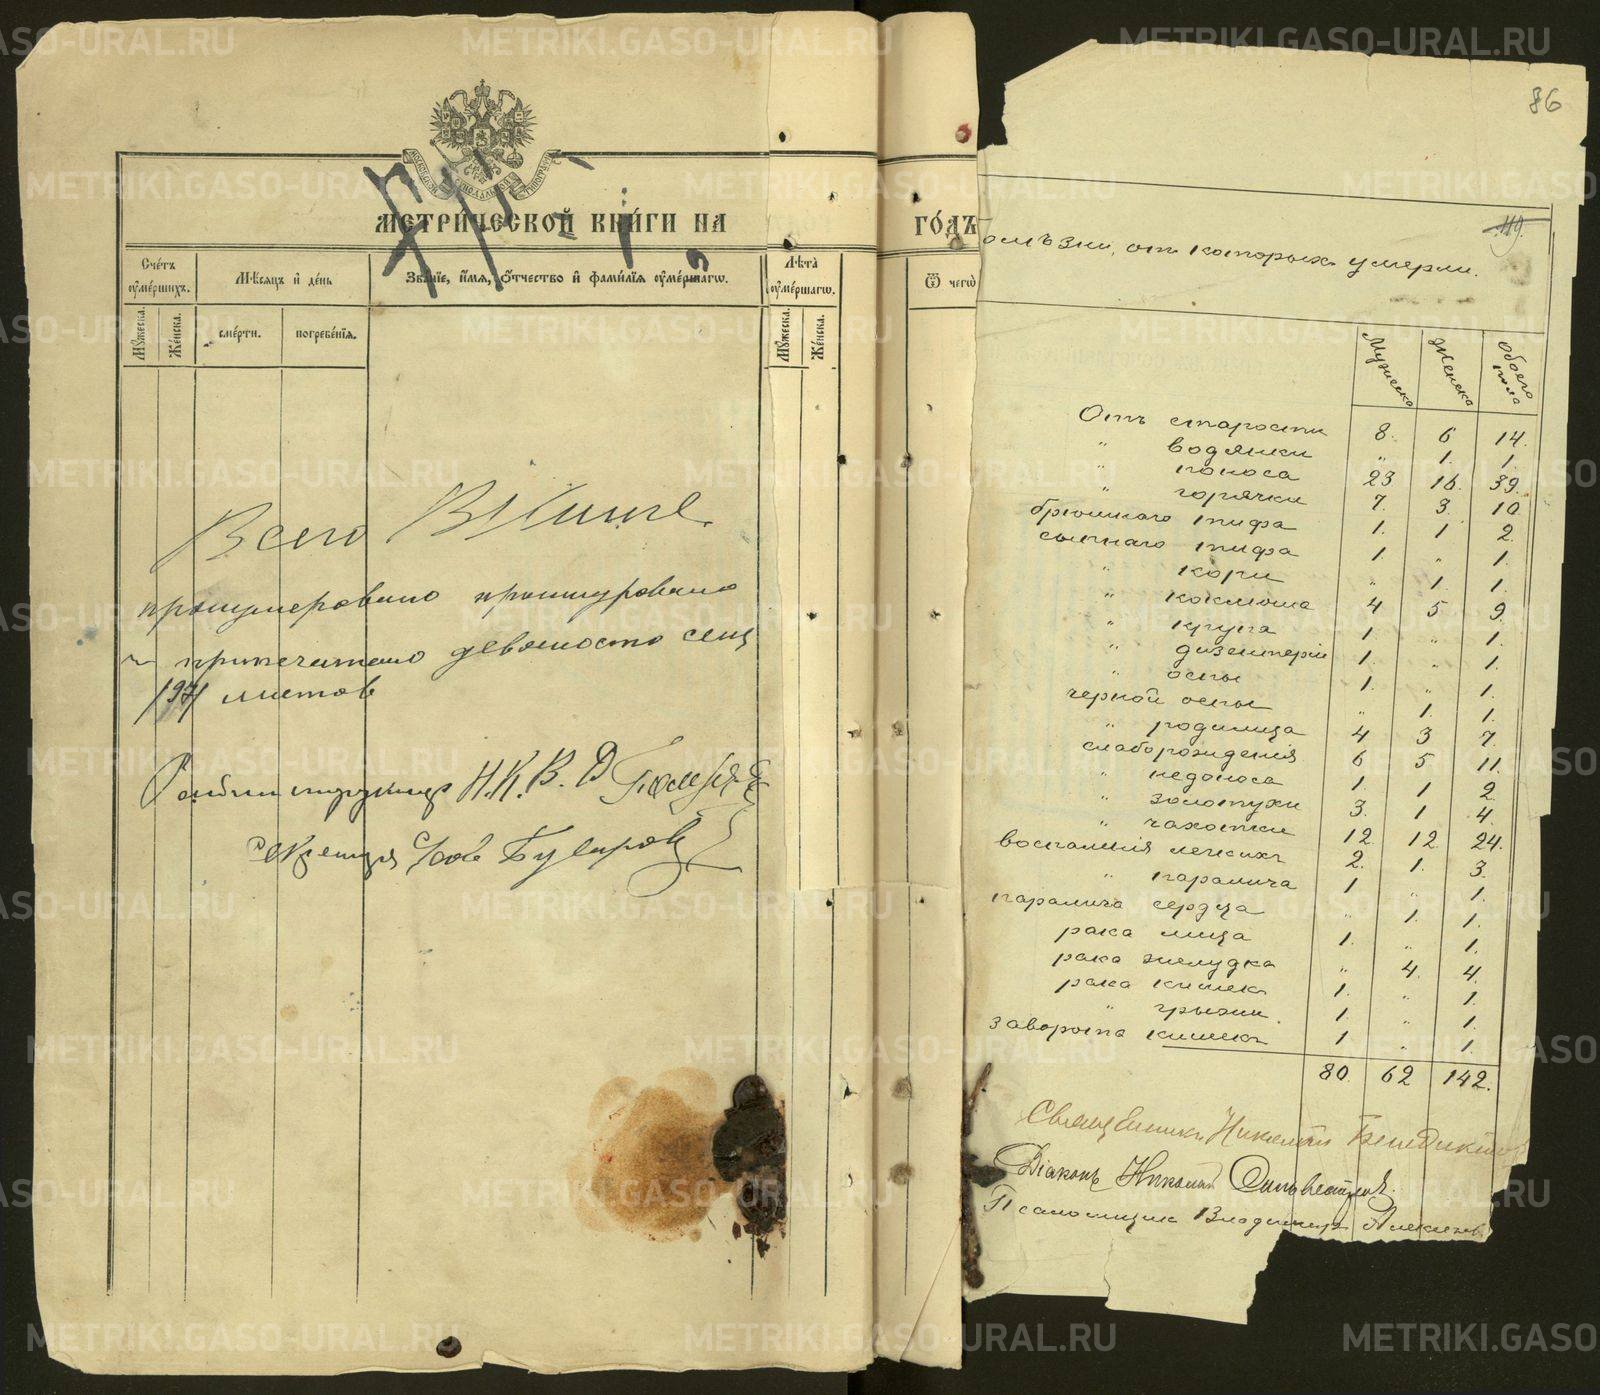 МОСКОВСКОЙ СѴНОДАЛЬНОЙ ТИПОГРАФІИ
МЕТРИ́ЧЕСКОЙ КНИ́ГИ НА
ГО́ДЪ
Сче́тъ ᲂуме́ршихъ.
Мѣ́сяцъ и де́нь
Зва́нїе, и҆́мя, ѻ҆́тчество и҆ фами́лїя ᲂуме́ршагѡ.
Лѣта̀ ᲂуме́ршагѡ.
Ѿ чегѡ̀
Мꙋ́жеска.
Же́нска.
сме́рти.
погребе́нїѧ.
Мꙋ́жеска.
Же́нска.
Всего В Книге
пронумеровано прошнуровано
и припечатано девяносто семь
/97/ листов
Н.К.В.Д
86
от которых умерли.
Мужеска
Женска
Обоего пола
Отъ старости 8. 6 14.
" водянки " 1. 1.
" поноса 23 16. 39.
" горячки 7. 3. 10
брюшнаго тифа 1. 1 2.
сыпнаго тифа 1. " 1.
" кори " 1 1.
" коклюша 4 5 9.
" крупа 1. " 1.
" дизентеріи 1. " 1.
" оспы 1. " 1.
черной оспы " 1. 1.
" родимца 4 3 7.
слаборожденія 6 5 11.
" недоноса 1 1 2.
" золотухи 3. 1 4.
" чахотки 12. 12 24.
воспаленія легкихъ 2. 1. 3.
" паралича 1 " 1.
паралича сердца " 1. 1.
рака лица 1. " 1.
рака желудка " 4. 4.
рака кишекъ 1. " 1.
" грыжи. 1. " 1.
заворота кишекъ 1 " 1.
80. 62 142.
Священникъ Николай Бенедиктовъ
Діаконъ Николай Сильвестровъ.
Псаломщикъ Владимиръ
METRIKI.GASO-URAL.RU